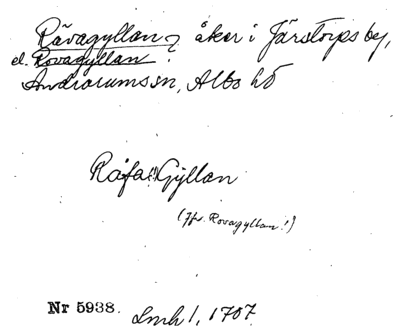 Råvagyllan? åker i Järstorps by,
el. Rovagyllan
Andrarums sn, Albo hd
Råfa!! Gÿllan
(Jfr. Rovagyllan!)
Nr 5938. Lmh 1, 1707